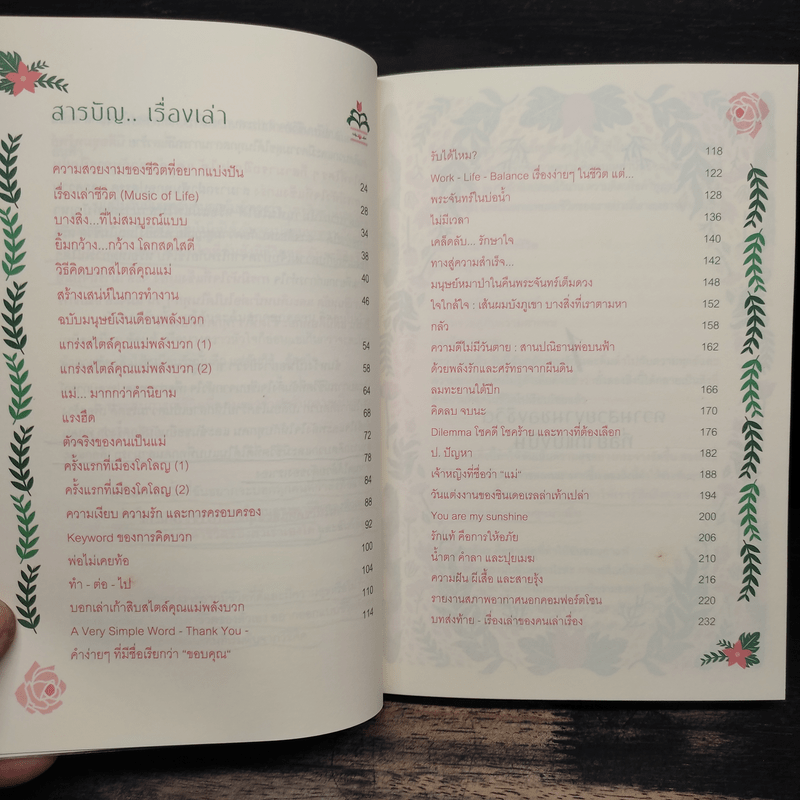 สารบัญ.. เรื่องเล่า
ความสวยงามของชีวิตที่อยากแบ่งปัน
เรื่องเล่าชีวิต (Music of Life) 24
บางสิ่ง...ที่ไม่สมบูรณ์แบบ 28
ยิ้มกว้าง...กว้าง โลกสดใสดี 34
วิธีคิดบวกสไตล์คุณแม่ 38
สร้างเสน่ห์ในการทำงาน 40
ฉบับมนุษย์เงินเดือนพลังบวก 46
แกร่งสไตล์คุณแม่พลังบวก (1) 54
แกร่งสไตล์คุณแม่พลังบวก (2) 58
แม่... มากกว่าคำนิยาม 64
แรงฮึด 68
ตัวจริงของคนเป็นแม่ 72
ครั้งแรกที่เมืองโคโลญ (1) 78
ครั้งแรกที่เมืองโคโลญ (2) 84
ความเงียบ ความรัก และการครอบครอง 88
Keyword ของการคิดบวก 92
พ่อไม่เคยท้อ 100
ทำ - ต่อ - ไป 104
บอกเล่าเก้าสิบสไตล์คุณแม่พลังบวก 110
A Very Simple Word - Thank You - 114
คำง่ายๆ ที่มีชื่อเรียกว่า "ขอบคุณ"
รับได้ไหม? 118
Work - Life - Balance เรื่องง่ายๆ ในชีวิต แต่... 122
พระจันทร์ในบ่อน้ำ 128
ไม่มีเวลา 136
เคล็ดลับ... รักษาใจ 140
ทางสู่ความสำเร็จ... 142
มนุษย์หมาป่าในคืนพระจันทร์เต็มดวง 148
ใจใกล้ใจ : เส้นผมบังภูเขา บางสิ่งที่เราตามหา 152
กลัว 158
ความดีไม่มีวันตาย : สานปณิธานพ่อบนฟ้า 162
ด้วยพลังรักและศรัทธาจากผืนดิน
ลมทะยานใต้ปีก 166
คิดลบ จบนะ 170
Dilemma โชคดี โชคร้าย และทางที่ต้องเลือก 176
ป. ปัญหา 182
เจ้าหญิงที่ชื่อว่า "แม่" 188
วันแต่งงานของซินเดอเรลล่าเท้าเปล่า 194
You are my sunshine 200
รักแท้ คือการให้อภัย 206
น้ำตา คำลา และปุยเมฆ 210
ความฝัน ผีเสื้อ และสายรุ้ง 216
รายงานสภาพอากาศนอกคอมฟอร์ตโซน 220
บทส่งท้าย - เรื่องเล่าของคนเล่าเรื่อง 232